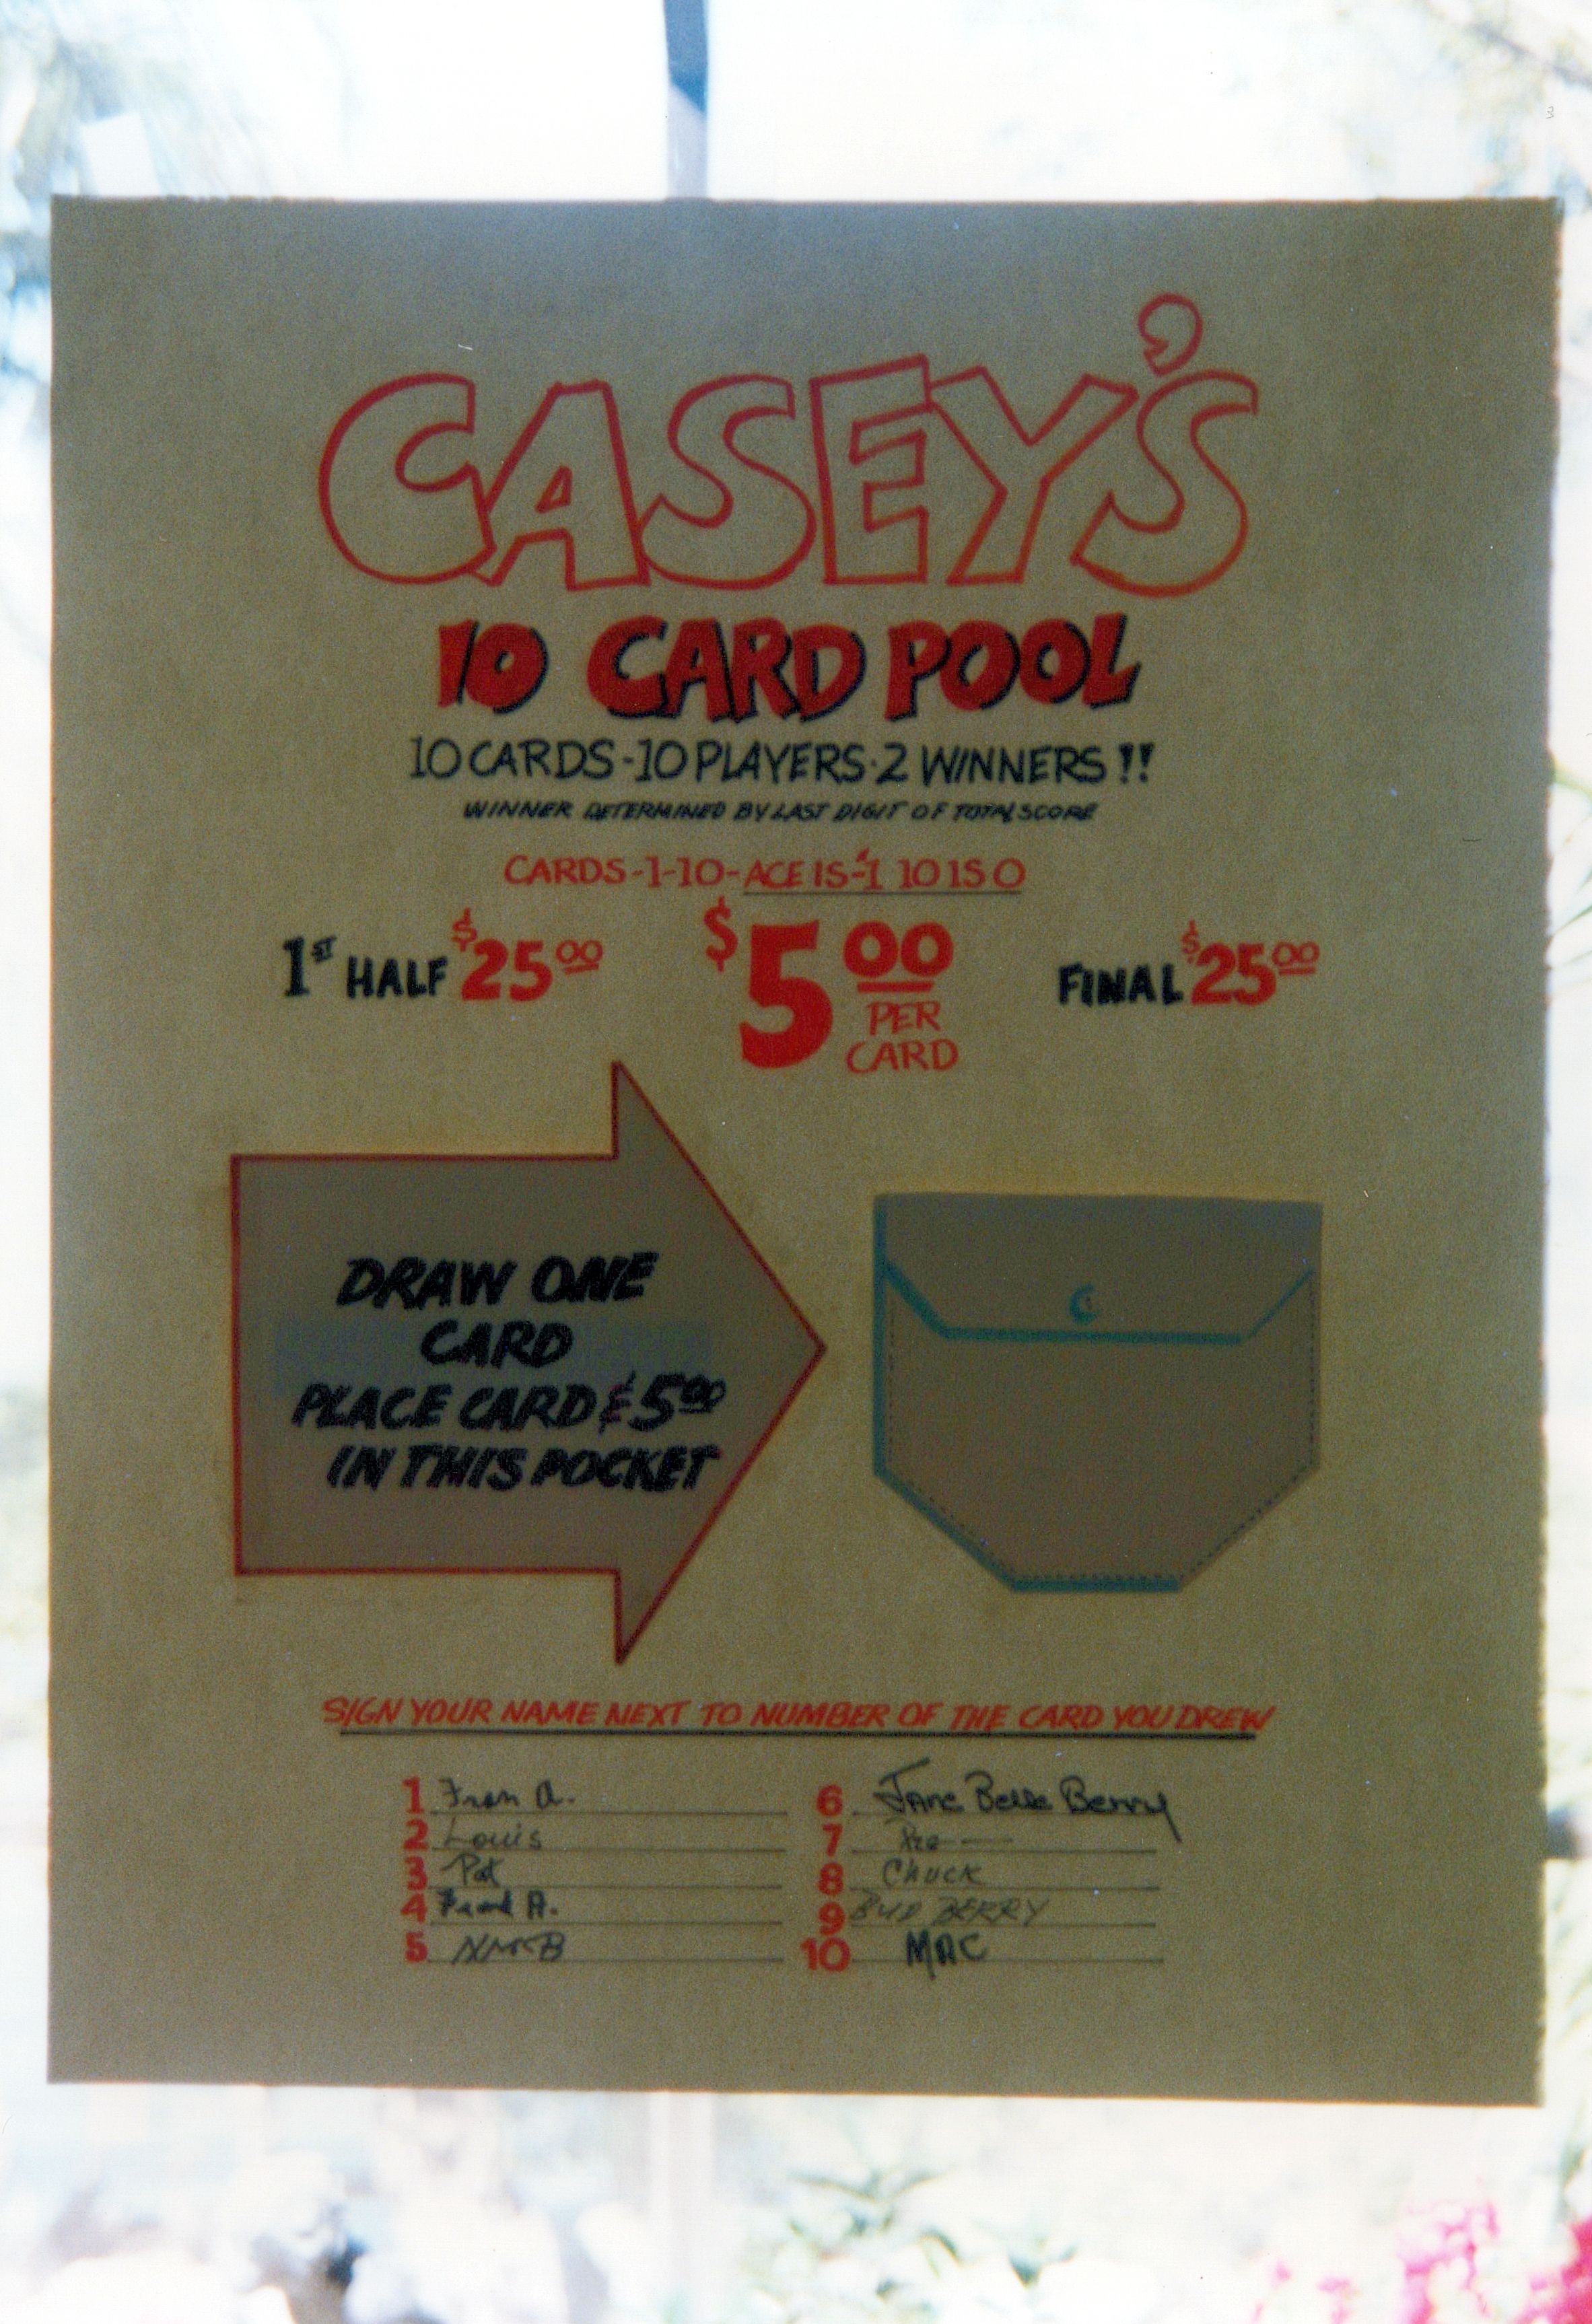 CASEY'S
10 CARD POOL
10 CARDS-10 PLAYERS-2 WINNERS!!
WINNER DETERMINED BY LAST DIGIT OF TOTAL SCORE
CARDS-1-10-ACE IS-1 10 IS 0
1ST HALF $25.00
$5.00 PER CARD
FINAL $25.00
DRAW ONE
CARD
PLACE CARD & 5.00
IN THIS POCKET
SIGN YOUR NAME NEXT TO NUMBER OF THE CARD YOU DREW
1 Fran A.
2 Louis
3 Pat
4 Frank A.
5
6 Jane Belle Berry
7
8 CHUCK
9 BUD BERRY
10 MAC